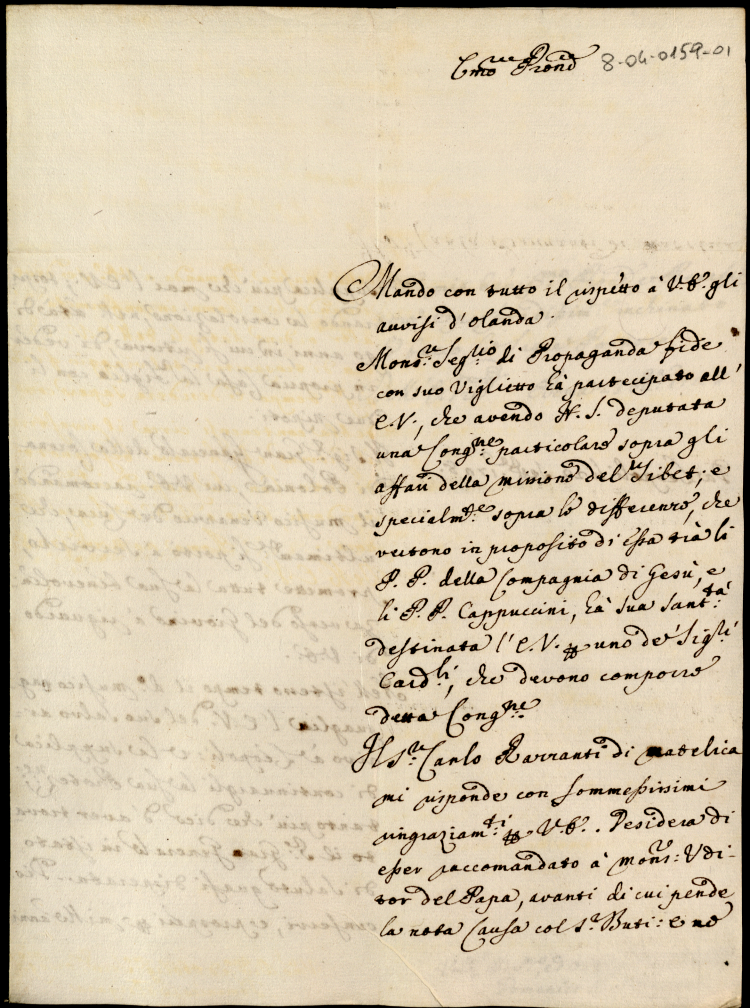 Emo e Rmo Prone
8-04-0159-01
Mando con tutto il rispetto à V.E. gli
avvisi d'olanda.
Monsr. Segrio di Propaganda fide
con suo Viglietto hà partecipato all'
E.V., che avendo N.S. deputata
una Congne. particolare sopra gli
affari della missione del Tibet; e
specialmte. sopra le differenze, che
vertono in proposito di essa trà li
P.P. della Compagnia di Gesù, e
li P.P. Cappuccini, hà sua santtà.
destinata l'E.V. per uno de' Sigri.
Cardli., che devono comporre
detta Congne.
Il Sr. Carlo Razzanti di matelica
mi risponde con sommessissimi
ringraziamti. per V.E.. Desidera di
esser raccomandato à monsr: Udi-
tor del Papa, avanti di cui pende
la nota Causa col Sr. Buti: e ne